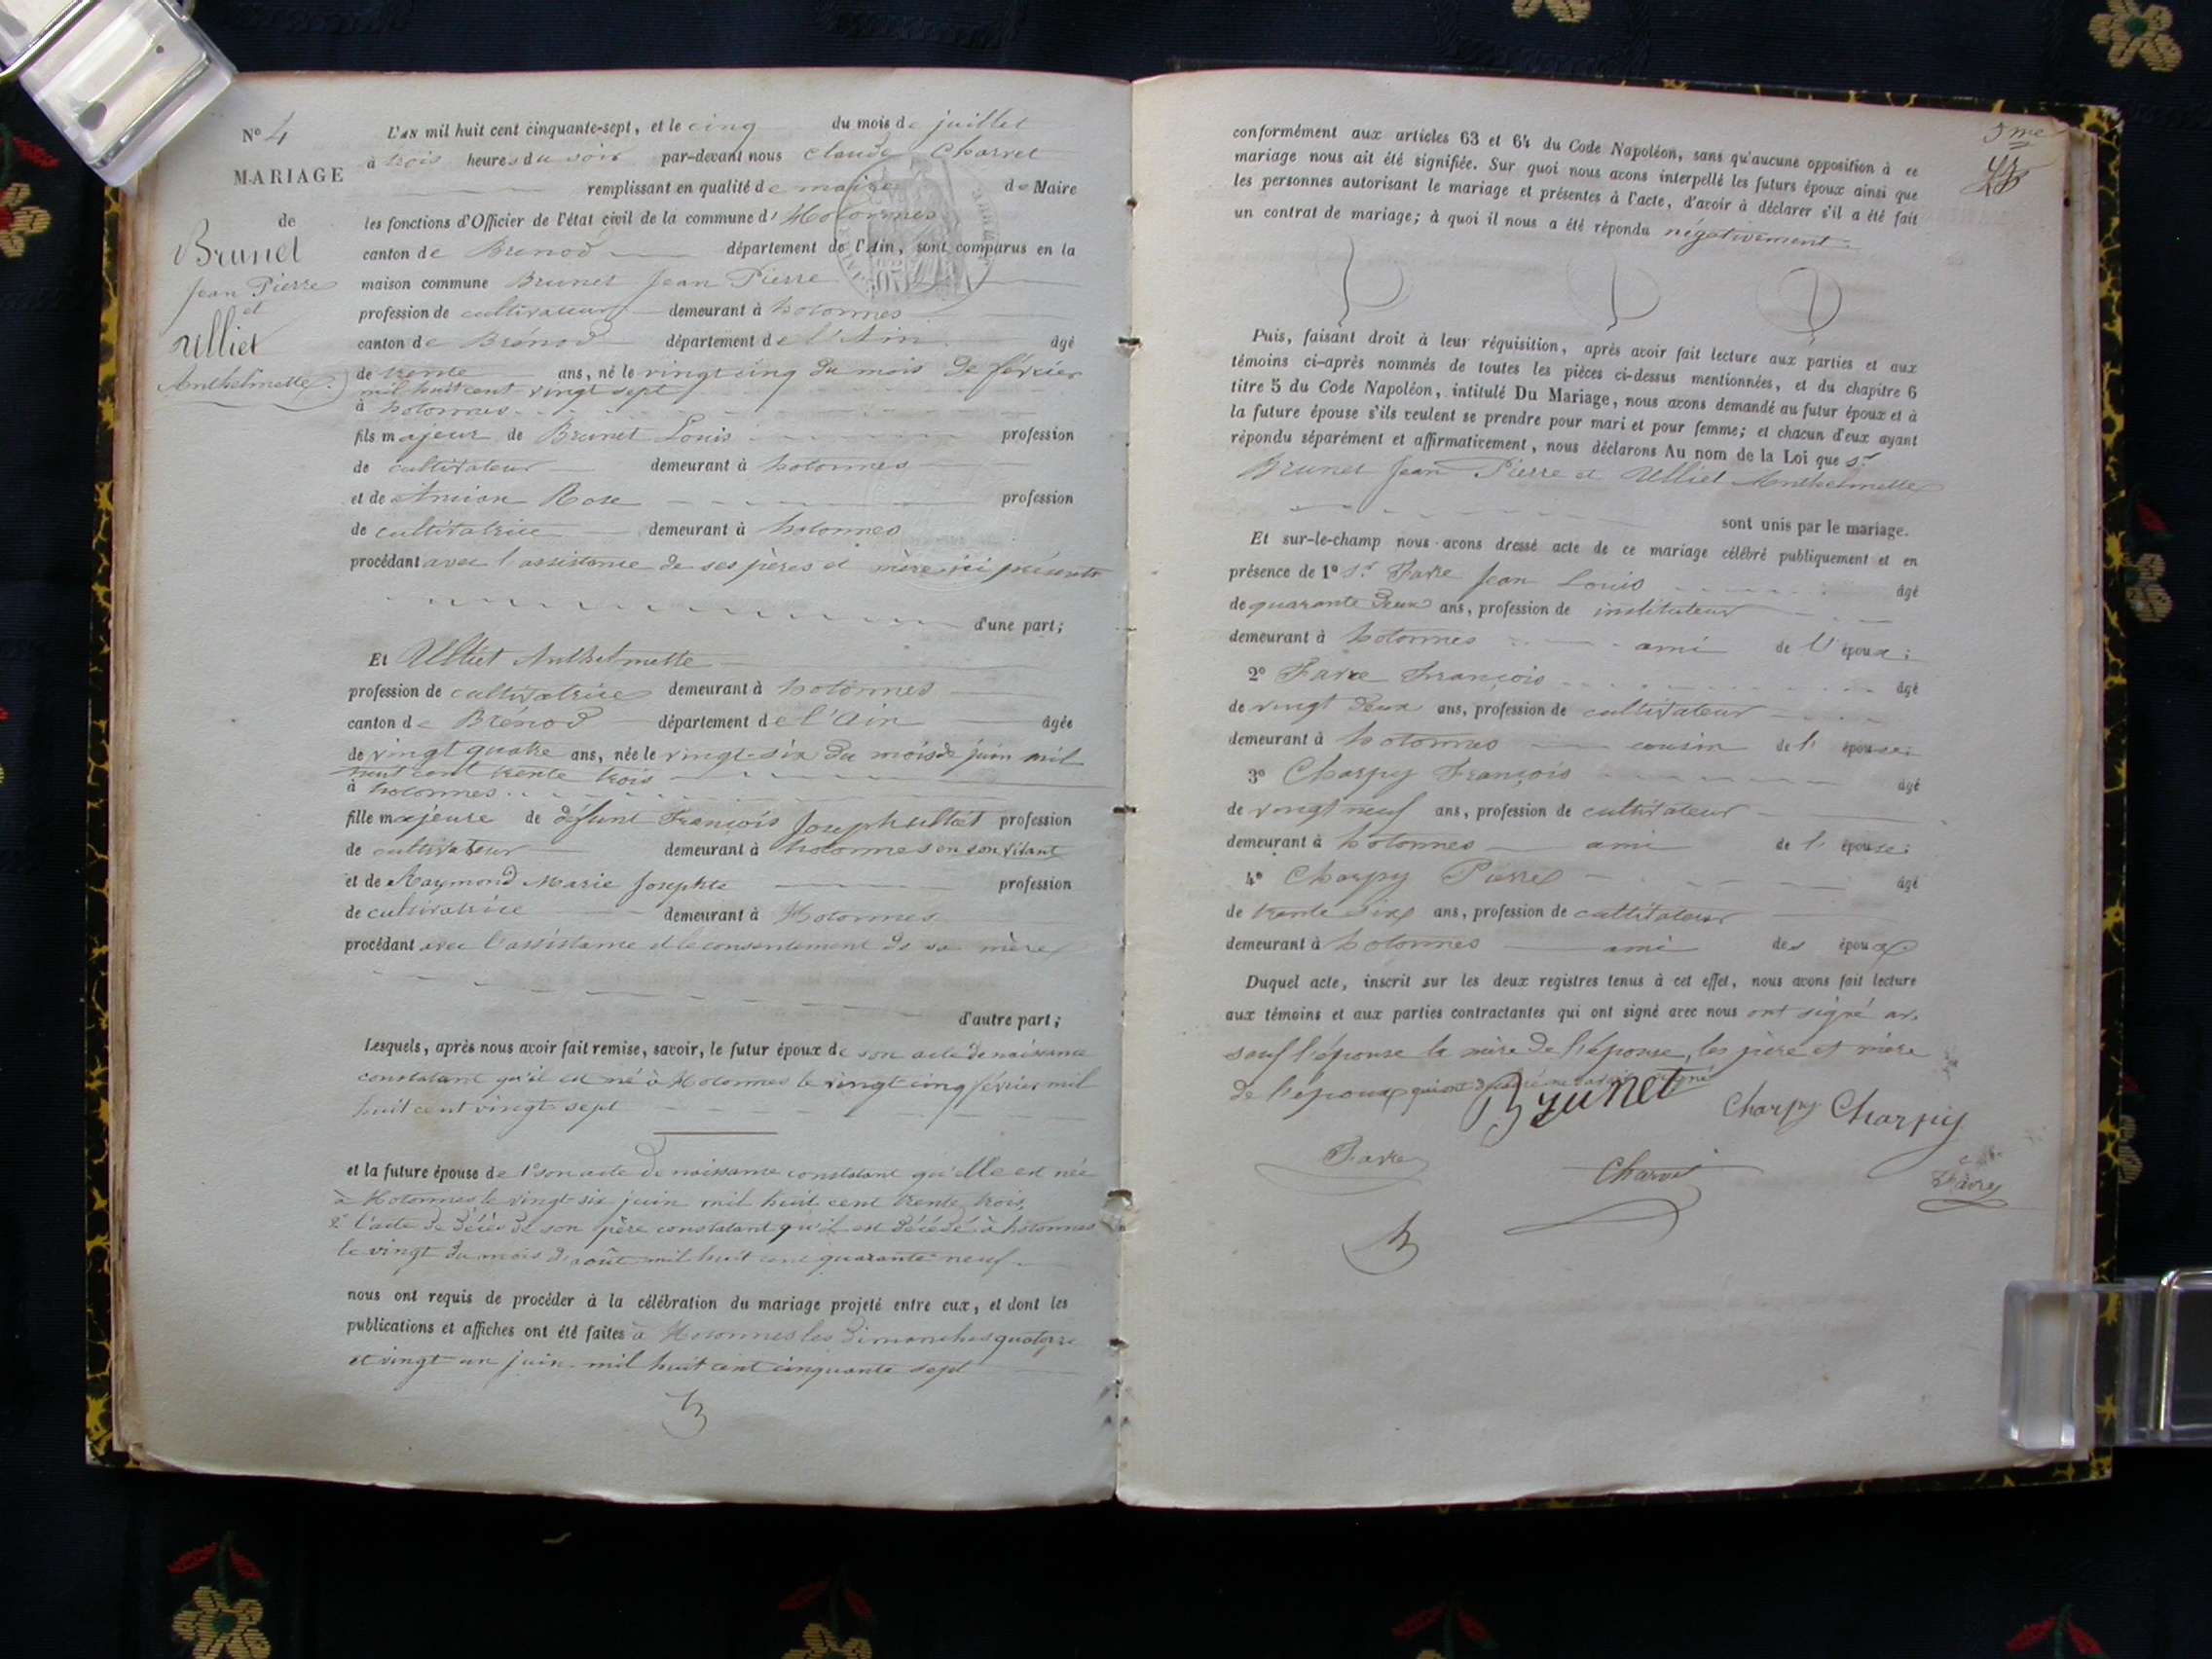 N° 4
MARIAGE
de
Brunet
Jean Pierre
et
Ulliet
Anthelmette
L'an mil huit cent cinquante-sept, et le cinq du mois de juillet
à trois heures du soir par-devant nous Claude Charvet
remplissant en qualité de maire de Maire
les fonctions d'Officier de l'état civil de la commune d' Hotonnes
canton de Brénod département de l'Ain, sont comparus en la
maison commune Brunet Jean Pierre
profession de cultivateur demeurant à hotonnes
canton de Brénod département de l'Ain âgé
de trente ans, né le vingt cinq du mois de février
mil huit cent vingt sept
à hotonnes
fils majeur de Brunet Louis profession
de cultivateur demeurant à hotonnes
et de Ancian Rose profession
de cultivatrice demeurant à hotonnes
procédant avec l'assistance de ses pères et mère ici présents
d'une part;
Et Ulliet Anthelmette
profession de cultivatrice demeurant à hotonnes
canton de Brénod département de l'Ain âgée
de vingt quatre ans, née le vingt-six du mois de juin mil
huit cent trente trois
à hotonnes
fille majeure de défunt François Joseph ulliet profession
de cultivateur demeurant à hotonnes en son vivant
et de Raymond Marie Josephte profession
de cultivatrice demeurant à Hotonnes
procédant avec l'assistance et le consentement de sa mère
d'autre part;
Lesquels, après nous avoir fait remise, savoir, le futur époux de son acte de naissance
constatant qu'il est né à Hotonnes le vingt cinq février mil
huit cent vingt sept
et la future épouse de 1° son acte de naissance constatant qu'elle est née
à Hotonnes le vingt-six juin mil huit cent trente trois,
2° l'acte de décès de son père constatant qu'il est décédé à hotonnes
le vingt du mois d'août mil huit cent quarante neuf
nous ont requis de procéder à la célébration du mariage projeté entre eux, et dont les
publications et affiches ont été faites à Hotonnes les dimanches quatorze
et vingt un juin mil huit cent cinquante sept
5me
conformément aux articles 63 et 64 du Code Napoléon, sans qu'aucune opposition à ce
mariage nous ait été signifiée. Sur quoi nous avons interpellé les futurs époux ainsi que
les personnes autorisant le mariage et présentes à l'acte, d'avoir à déclarer s'il a été fait
un contrat de mariage; à quoi il nous a été répondu négativement
Puis, faisant droit à leur réquisition, après avoir fait lecture aux parties et aux
témoins ci-après nommés de toutes les pièces ci-dessus mentionnées, et du chapitre 6
titre 5 du Code Napoléon, intitulé Du Mariage, nous avons demandé au futur époux et à
la future épouse s'ils veulent se prendre pour mari et pour femme; et chacun d'eux ayant
répondu séparément et affirmativement, nous déclarons Au nom de la Loi que Sr
Brunet Jean Pierre et Ulliet Anthelmette
sont unis par le mariage.
Et sur-le-champ nous avons dressé acte de ce mariage célébré publiquement et en
présence de 1° Sr Favre Jean Louis âgé
de quarante deux ans, profession de instituteur
demeurant à hotonnes ami de l' époux;
2° Favre François âgé
de vingt deux ans, profession de cultivateur
demeurant à hotonnes cousin de l' épouse;
3° Charpy François âgé
de vingt neuf ans, profession de cultivateur
demeurant à hotonnes ami de l' épouse;
4° Charpy Pierre âgé
de trente six ans, profession de cultivateur
demeurant à hotonnes ami des époux
Duquel acte, inscrit sur les deux registres tenus à cet effet, nous avons fait lecture
aux témoins et aux parties contractantes qui ont signé avec nous ont signé
sauf l'épouse la mère de l'épouse, les père et mère
de l'époux qui ont déclaré ne savoir signé
Brunet Charpy Charpy
Favre Charvet Favre